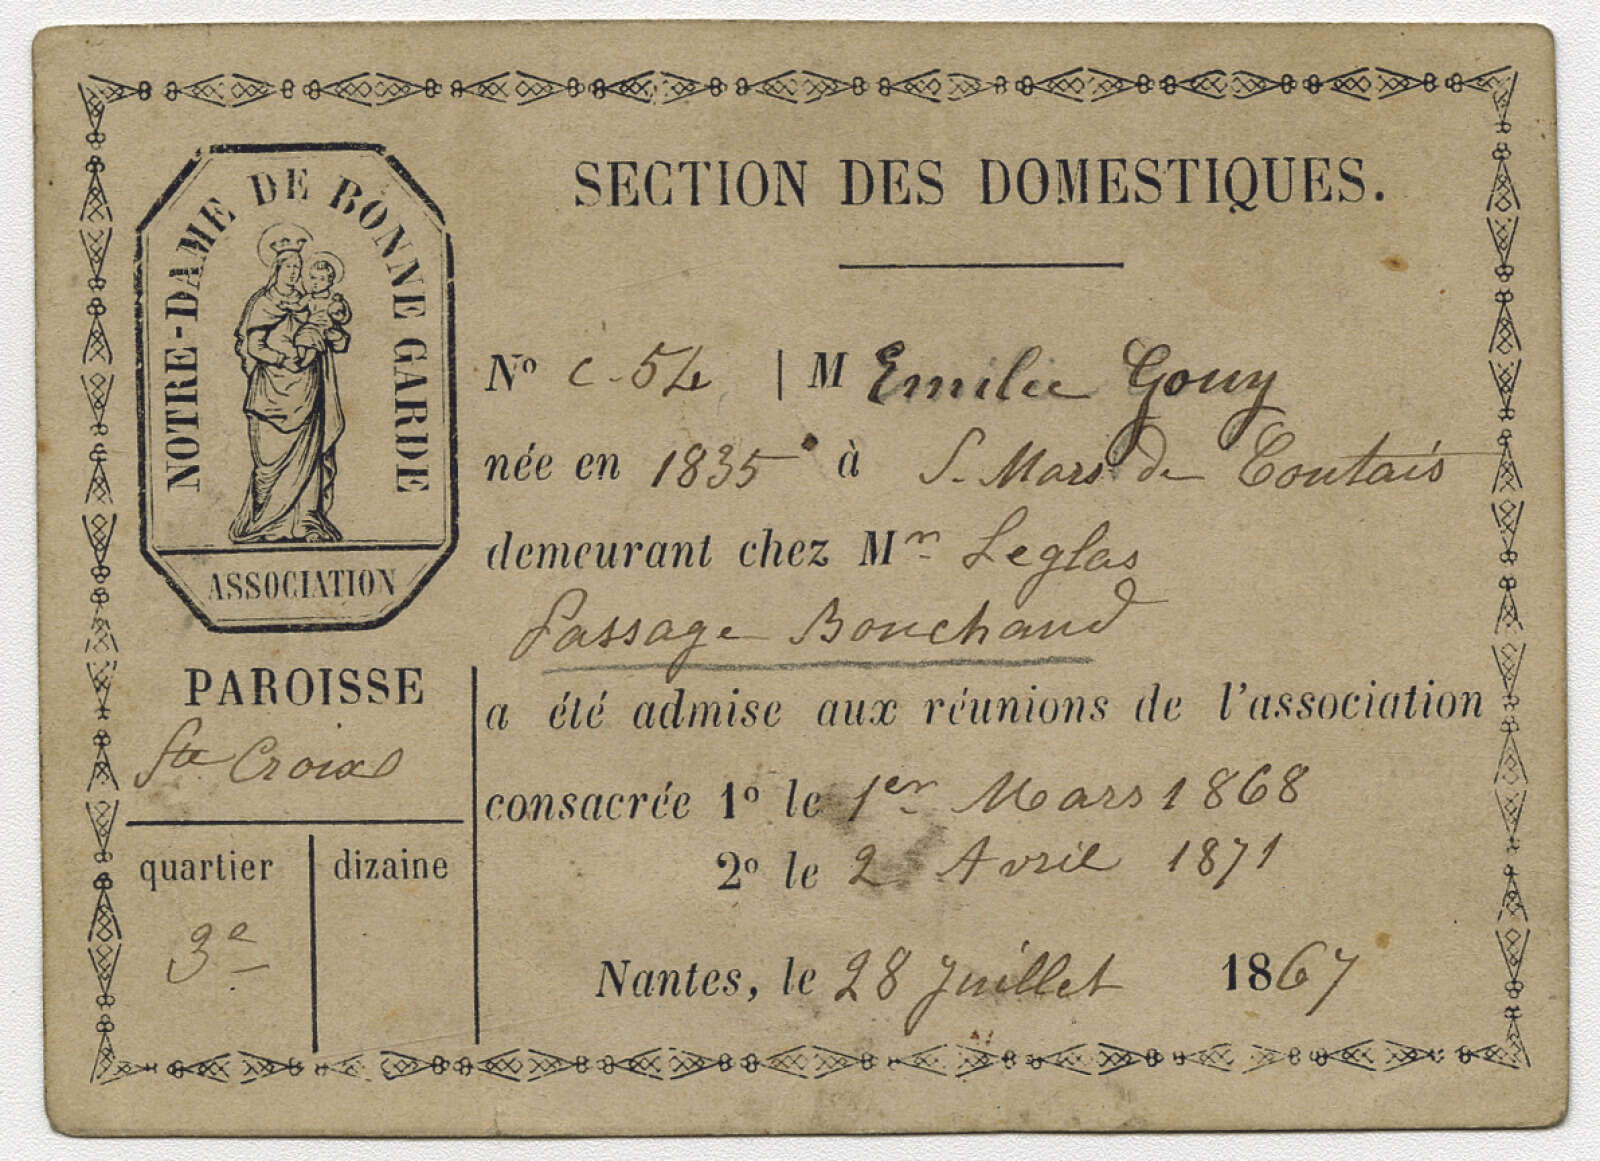 NOTRE-DAME DE BONNE GARDE
ASSOCIATION
PAROISSE
Ste Croix
quartier
3e
dizaine
SECTION DES DOMESTIQUES.
No C-54 | M Emilie Gouy
née en 1835 à S. Mars de Coutais
demeurant chez Mr Leglas
Passage Bouchaud
a été admise aux réunions de l'association
consacrée 1o le 1er Mars 1868
2o le 2 Avril 1871
Nantes, le 28 Juillet 1867